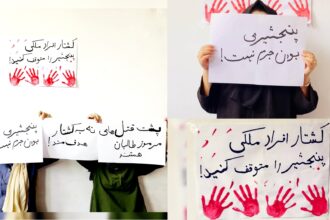 کشتار افراد ملکی
پنجشیر را متوقف کنید!
پشت قتل های
مرموز طالبان
هستند
نه به کشتار
هدفمند!
پنجشیری
بودن جرم نیست
پنجشیری
بودن جرم نیست!
کشتار افراد ملکی
پنجشیر را متوقف کنید!